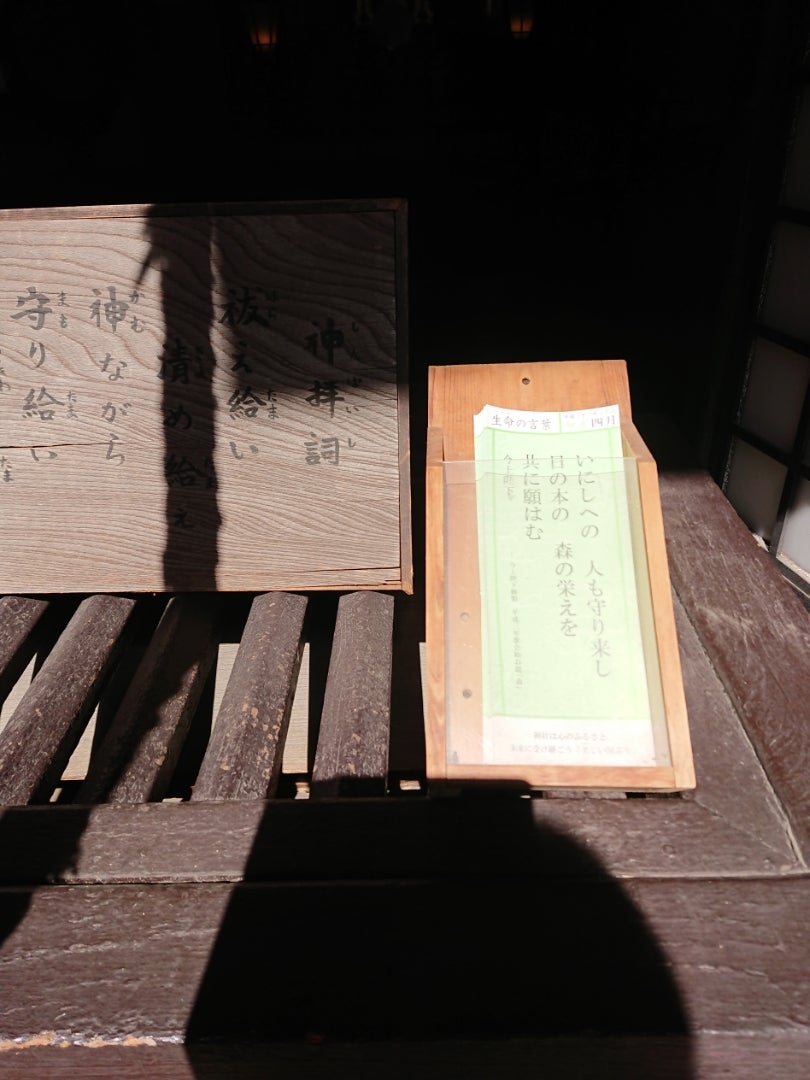 神拝詞
しんぱいし
祓え給い
はら たま
清め給え
神ながら
かむ
守り給い
まも たま
生命の言葉
四月
いにしへの 人も守り来し
日の本の 森の栄えを
共に願はむ
今上陛下
神社は心のふるさと
未来に受け継ごう「美しい国ぶり」